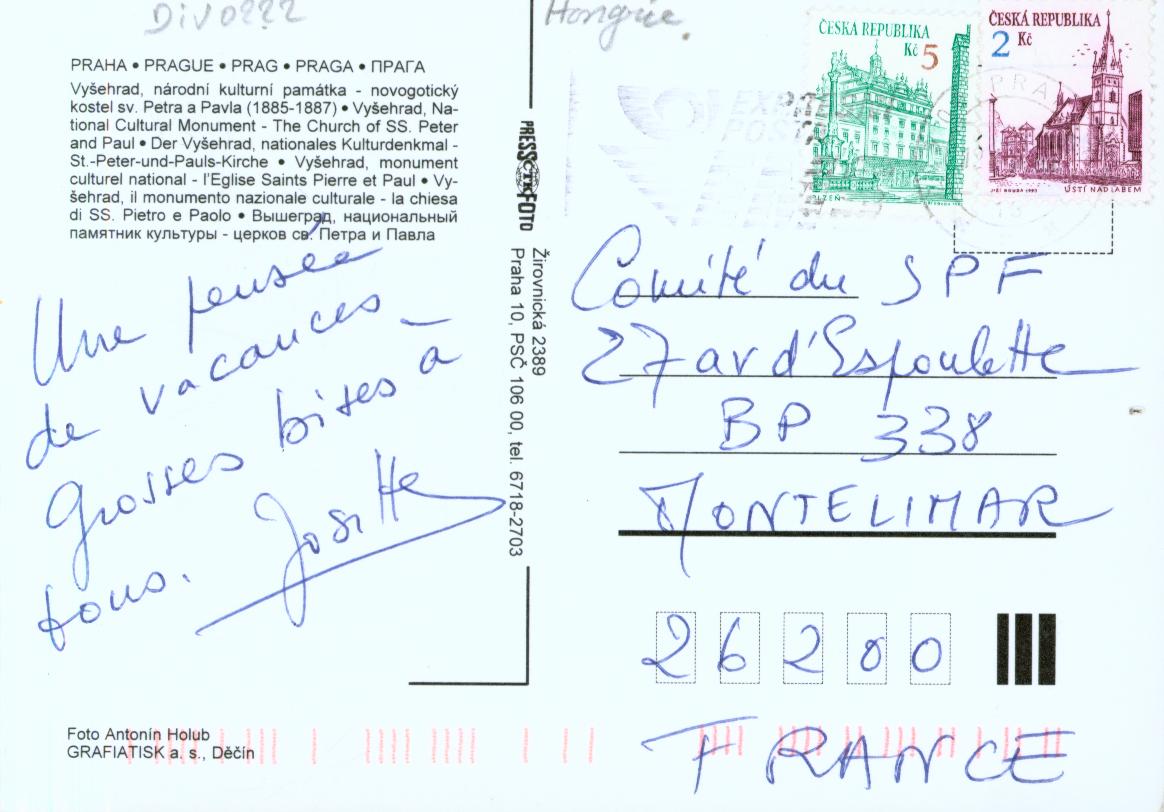 DIVO???
Hongrie.
PRAHA • PRAGUE • PRAG • PRAGA • ПРАГА
Vyšehrad, národní kulturní památka - novogotický
kostel sv. Petra a Pavla (1885-1887) • Vyšehrad, Na-
tional Cultural Monument - The Church of SS. Peter
and Paul • Der Vyšehrad, nationales Kulturdenkmal -
St.-Peter-und-Pauls-Kirche • Vyšehrad, monument
culturel national - l'Eglise Saints Pierre et Paul • Vy-
šehrad, il monumento nazionale culturale - la chiesa
di SS. Pietro e Paolo • Вышеград, национальный
памятник культуры - церков св. Петра и Павла
Une pensée
de vacances_
Grosses bises a
tous.
Josette
PRESS ČTK FOTO
Žirovnická 2389
Praha 10, PSČ 106 00, tel. 6718-2703
ČESKÁ REPUBLIKA
Kč 5
PLZEŇ
ČESKÁ REPUBLIKA
2 Kč
ÚSTÍ NAD LABEM
PRA
Comité du SPF
27 av d'Espoulette
BP 338
MONTELIMAR
26200
FRANCE
Foto Antonín Holub
GRAFIATISK a. s., Děčín